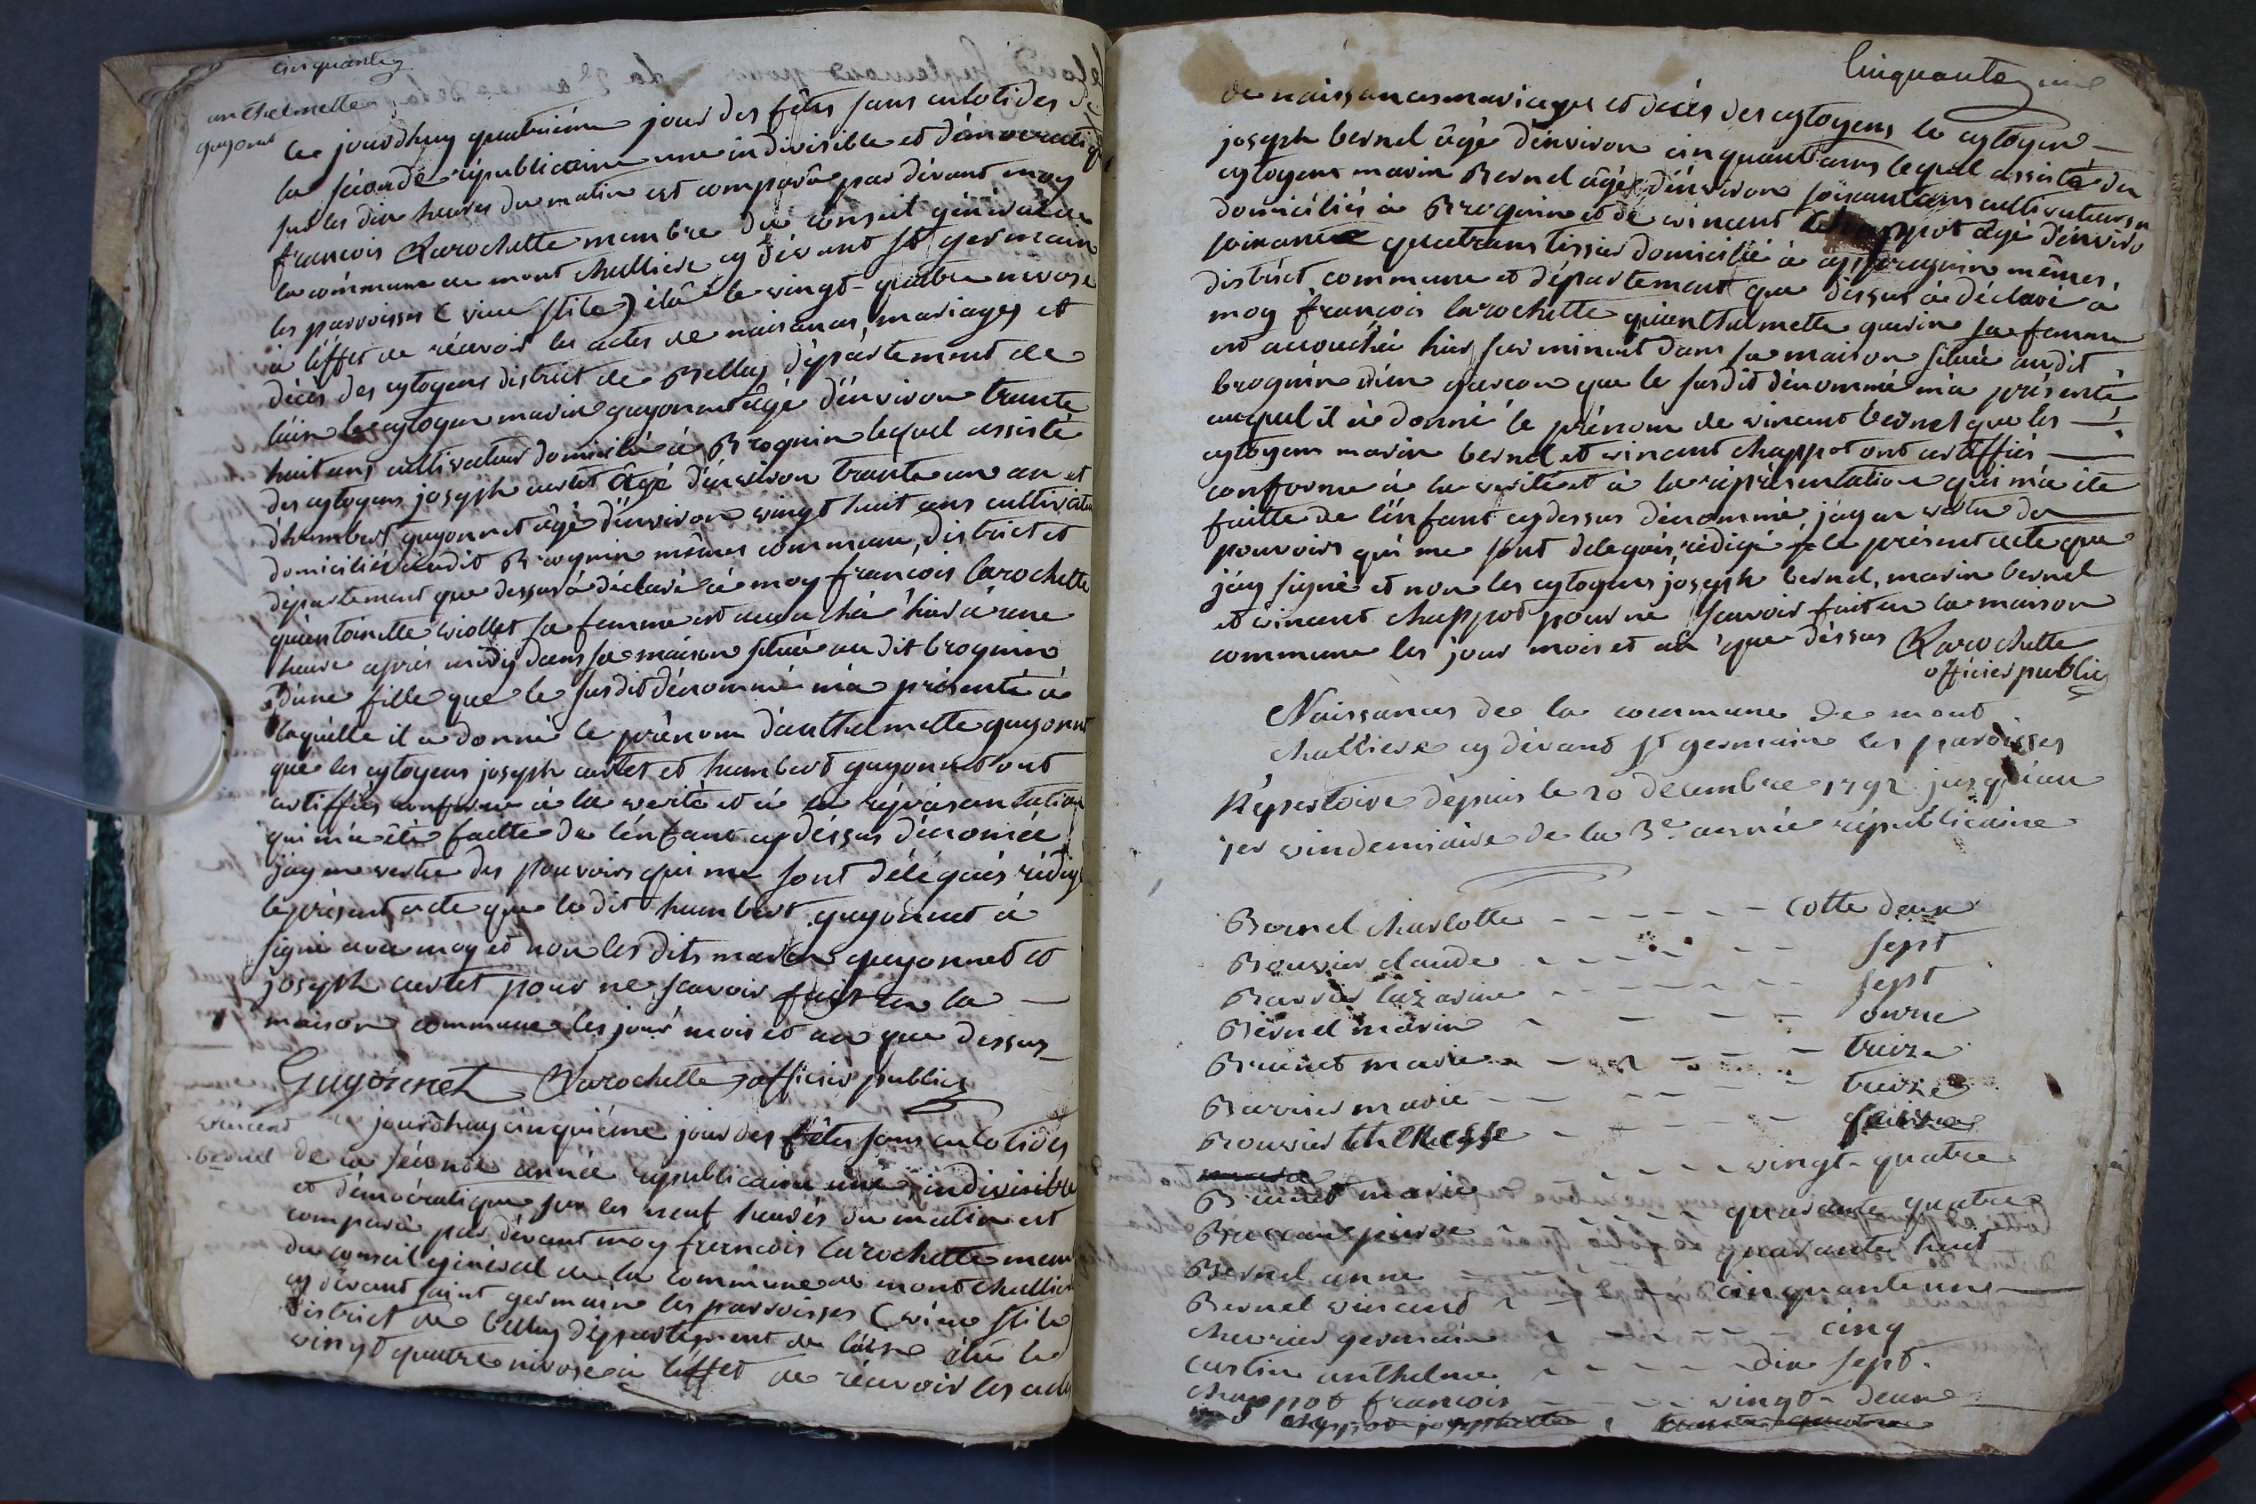 cinquante
anthelmette
guyonnet
ce jourdhuy quatrieme jour des fêtes sans culotides
la seconde républicaine une indivisible et démocratique
sur les dix heures du matin est comparû par dévant moy
francois Larochette membre du conseil général de
la commune de mont challiere cy dévant st germain
les parroisses (vieux stile) élû le vingt-quatre nivose
à léffet de récevoir les actes de naisances, mariages et
décès des cytoyens district de Belley département de
lain le cytoyen marin guyonnet âgé dénviron trante
huit ans cultivateur domicilié à Brognin lequel assisté
des cytoyens joseph curtet âgé dénviron trante un an et
dhumbert guyonnet âgé dénviron vingt huit ans cultivateurs
domiciliés audit Brognin mêmes commune, district et
département que dessus à déclaré à moy francois larochette
quantoinette viollet sa femme est accouchée hier à une
heure après midy dans sa maison située audit brognin
dune fille que le susdit dénommé ma présenté à
laquelle il a donné le prénom danthelmette guyonnet
que les cytoyens joseph curtet et humbert guyonnet ont
certiffiés conforme à la verité et à la réprésantation
qui ma été faitte de lénfant cy déssus dénomée
jay en vertu des pouvoirs qui me sont délégués rédigé
le présent acte que ledit humbert guyonnet à
signé avec moy et non lesdits marin guyonnet et
joseph curtet pour ne scavoir fait en la
maison commune les jour mois et an que dessus
Guyonnet Larochette officier public
vincent
bernel
ce jourdhuy cinquième jour des fêtes sans culotides
de la séconde année republicaine une, indivisible
et démocratique sur les neuf heures du matin est
comparû par dévant moy francois larochette mem
du conseil général de la commune de mont challiere
cy dévant saint germain les parroisses (vieux stile
district de belley département de láin élu le
vingt quatre nivose à léffet de récevoir les actes
Cinquante une
de naissances mariages et décès des cytoyens le cytoyen
joseph bernel âgé dénviron cinquant ans lequel assisté du
cytoyens marin Bernel âgé dénviron soixant ans cultivateurs
domiciliés à Brognin et de vincent chappot âgé dénviro
soixante quatrans tissier domicilié à appregnin mêmes
district commune et département que dessus à déclaré à
moy françois larochette quanthelmette guerin sa femme
est accouchée hier sur minuit dans sa maison située audit
brognin dun garcon que le susdit dénommé ma présenté
auquel il à donné le prénom de vincent bernel que les
cytoyens marin bernel et vincent chappot ont certiffiés
conforme à la verité et à la réprésentation qui ma été
faitte de lénfant cy dessus dénommé jay en vertu des
pouvoirs qui me sont delegués, rédigé le présent acte que
jáy signé et non les cytoyens joseph bernel, marin bernel
et vincent chappot pour ne scavoir fait en la maison
commune les jour mois et an que déssus Larochette
officier public
Naissances de la commune de mont
challiere cy dévant st germain les paroisses
Répertoire dépuis le 20 decembre 1792 jusqu'au
1er vindemiaire de la 3e. année républicaine
Bernel charlotte cotte deux
Bouvier claude sept
Barrier lazarine sept
Bernel marin onze
Brunet marie treize
Barrier marie treize
Bouvier thèresse seize
Brunet marie vingt-quatre
pierre quarante quatre
Bernel anne quarante huit
Bernel vincent cinquante une
chevrier germain cinq
curtin anthelme dix sept.
chappot françois vingt-deux
chappot josephette trante quatre